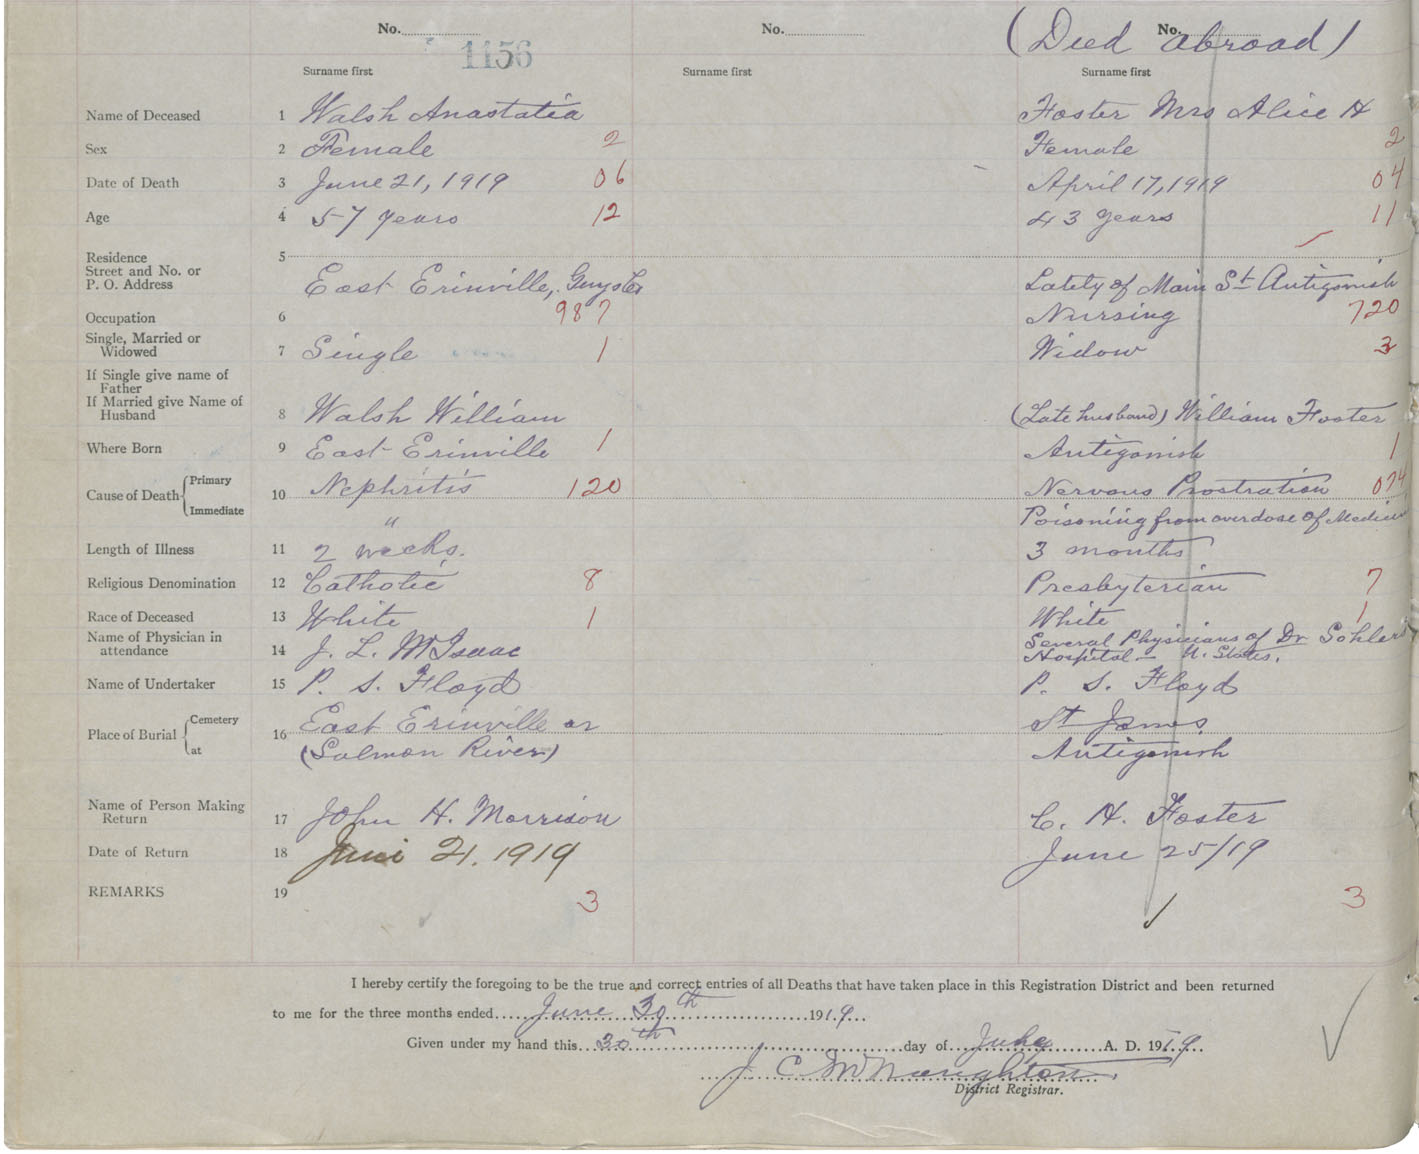 No. No. No. (Died abroad)
1156
Surname first Surname first Surname first
Name of Deceased 1 Walsh Anastatia Foster Mrs Alice H
Sex 2 Female 2 Female 2
Date of Death 3 June 21, 1919 06 April 17, 1919 04
Age 4 57 years 12 43 years 11
Residence 5
Street and No. or
P. O. Address East Erinville, Guys Co Lately of Main St Antigonish
Occupation 6 987 Nursing 720
Single, Married or
Widowed 7 Single 1 Widow 3
If Single give name of
Father
If Married give Name of
Husband 8 Walsh William (Late husband) William Foster
Where Born 9 East Erinville 1 Antigonish 1
Cause of Death Primary 10 Nephritis 120 Nervous Prostration 074
Immediate " Poisoning from overdose of Medicin
Length of Illness 11 2 weeks. 3 months
Religious Denomination 12 Catholic 8 Presbyterian 7
Race of Deceased 13 White 1 White 1
Name of Physician in
attendance 14 J. L. McIsaac Several Physicians of Dr
Hospital - U. States.
Name of Undertaker 15 P. S. Floyd P. S. Floyd
Place of Burial Cemetery 16 East Erinville or St James
at (Salmon River) Antigonish
Name of Person Making
Return 17 John H. Morrison C. H. Foster
Date of Return 18 June 21. 1919 June 25/19
REMARKS 19 3 3
I hereby certify the foregoing to be the true and correct entries of all Deaths that have taken place in this Registration District and been returned
to me for the three months ended June 30th 1919
Given under my hand this 30th day of A. D. 1919
J C McNaughton
District Registrar.